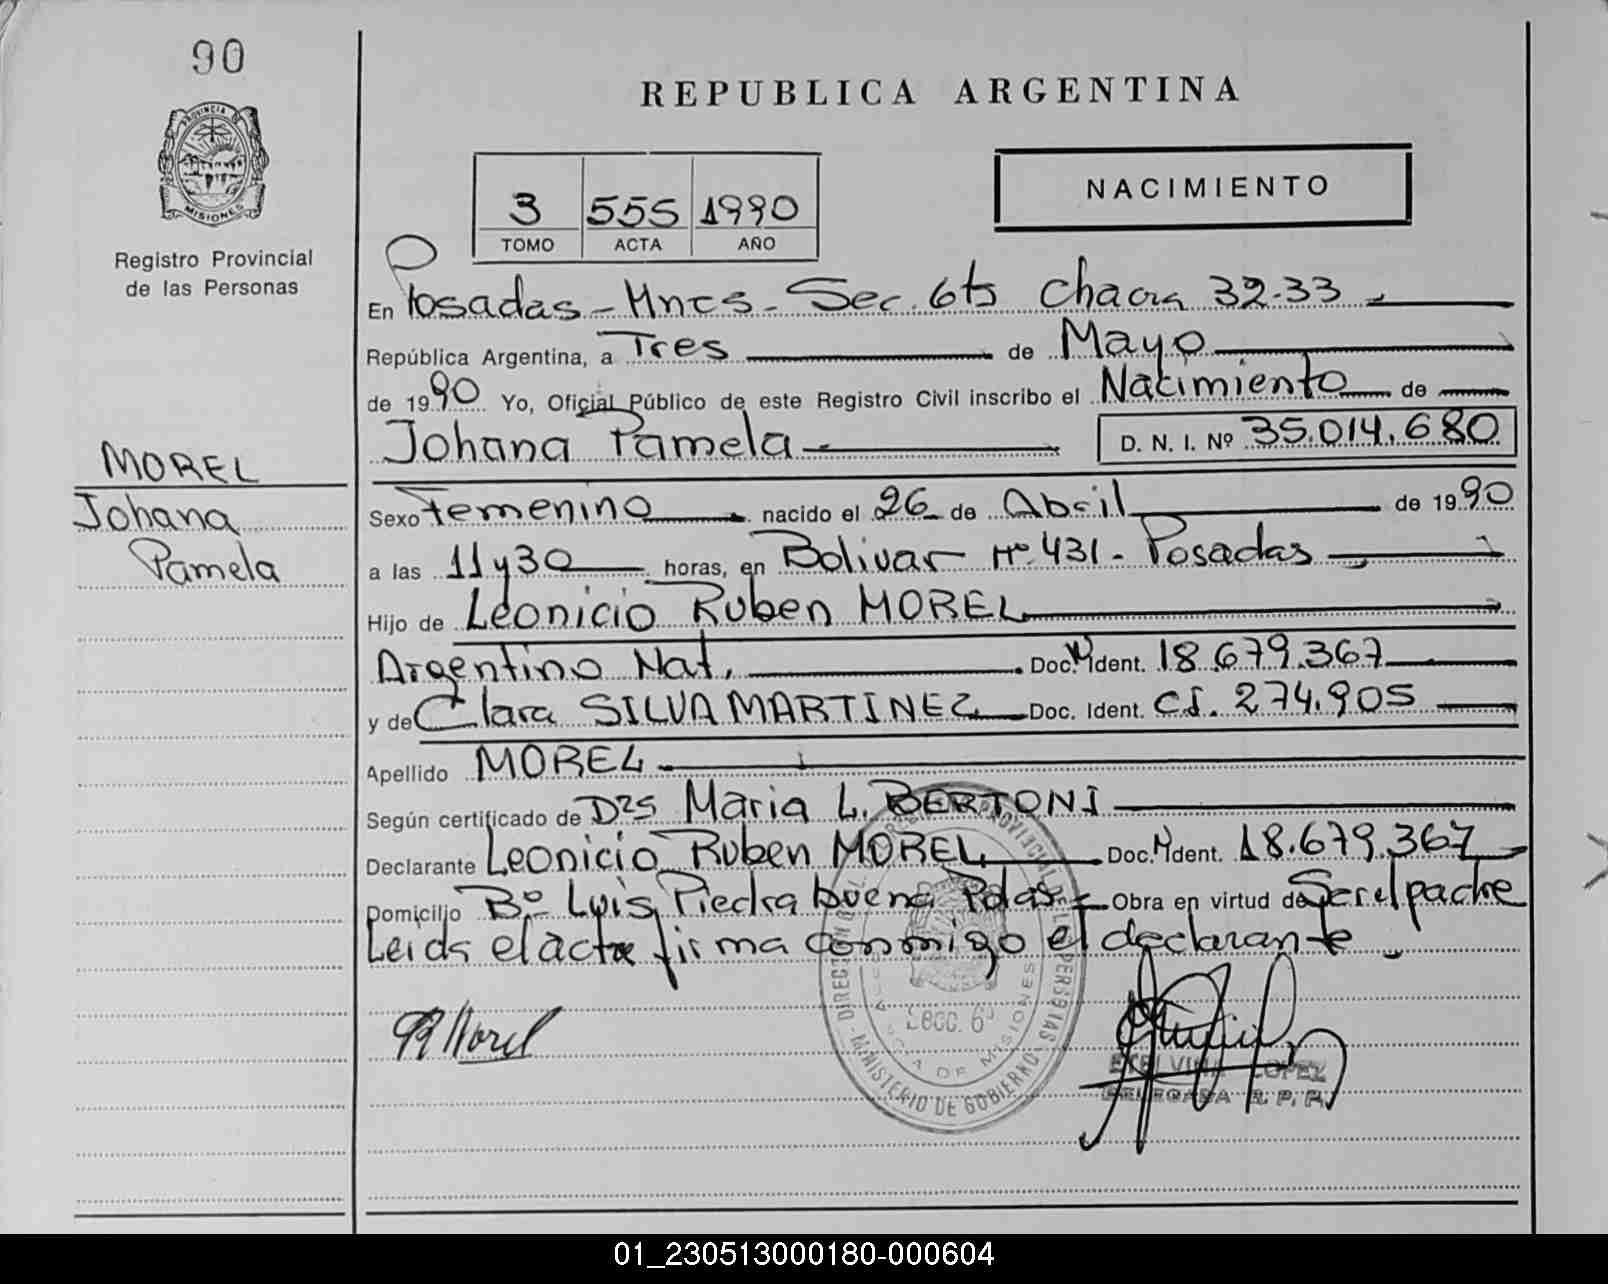 90
PROVINCIA DE
MISIONES
Registro Provincial
de las Personas
MOREL
Johana
Pamela
REPUBLICA ARGENTINA
3 555 1990
TOMO ACTA AÑO
NACIMIENTO
En Posadas - Mnes - Sec. 6ta Chacra 32-33
República Argentina, a Tres de Mayo
de 1990 Yo, Oficial Público de este Registro Civil inscribo el Nacimiento de
Johana Pamela D. N. I. Nº 35.014.680
Sexo Femenino nacido el 26 de Abril de 1990
a las 11 y 30 horas, en Bolivar Nº 431 - Posadas
Hijo de Leonicio Ruben MOREL
Argentino Nat. Doc. N Ident. 18.679.367
y de Clara SILVA MARTINEZ Doc. Ident. CI. 274.905
Apellido MOREL
Según certificado de Dra Maria L. BERTONI
Declarante Leonicio Ruben MOREL Doc. N Ident. 18.679.367
Domicilio Bº Luis Piedra buena Pdas Obra en virtud de Ser el padre
Leida el acta firma conmigo el declarante
Morel
Secc. 6
MINISTERIO DE GOBIERNO
MISIONES
LOPEZ
DELEGADA R. P. P.
01_230513000180-000604